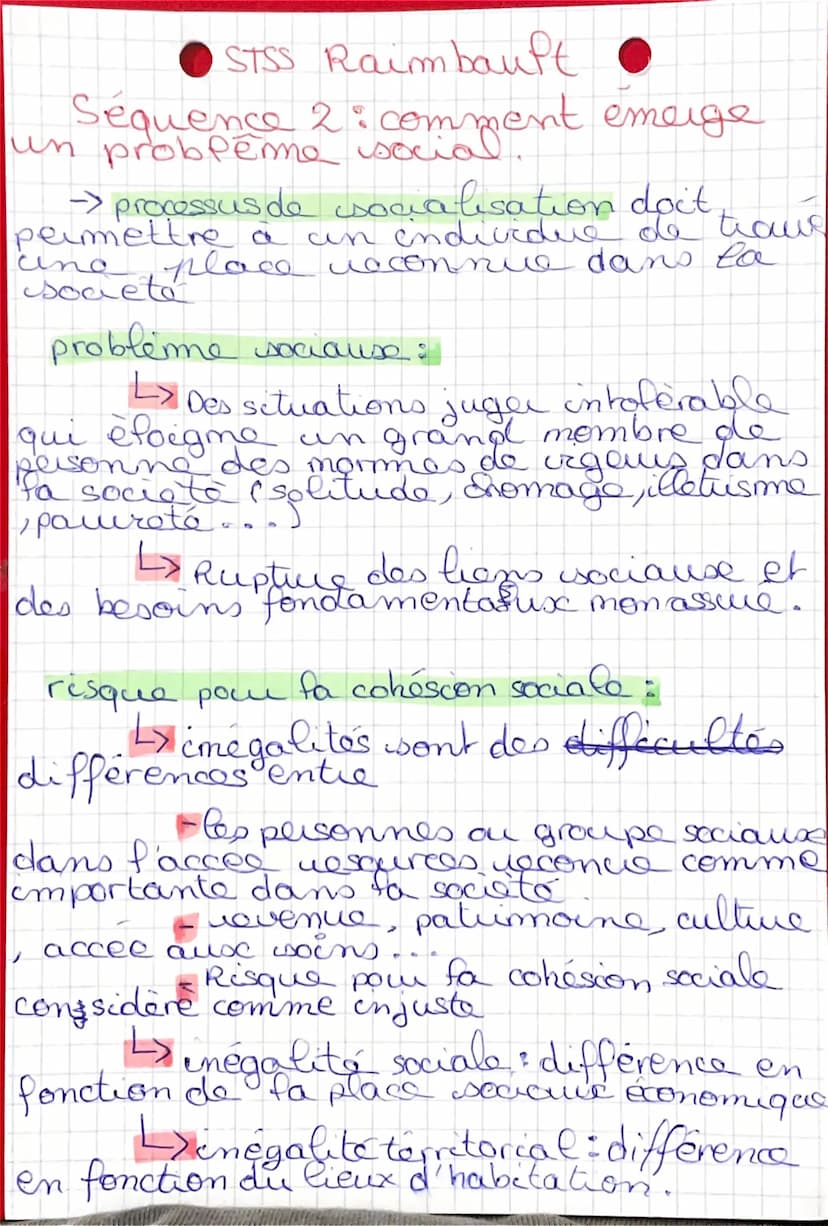 STSS Raimbault
Séquence 2 : comment émerge
un problème social.
-> processus de socialisation doit
permettre à un individue de trouvé
une place reconnue dans la
société
problème sociause :
↳ Des situations juger intolérable
qui éloigne un grand nombre de
personne des normes de vigeurs dans
la société (solitude, chomage, illetrisme
, pauvreté ...)
↳ Rupture des liens sociause et
des besoins fondamentalux non assure.
risque pour la cohéscion sociale :
↳ inégalités sont des difficultés
différences entre
- les personnes ou groupe sociause
dans l'accee resources reconue comme
importante dans la société
- revenue, patrimoine, culture
, accée ause soins...
- Risque pour la cohésion sociale
considéré comme injuste
↳ inégalité sociale : différence en
fonction de la place économique
↳ inégalité térritorial : différence
en fonction du lieux d'habitation.